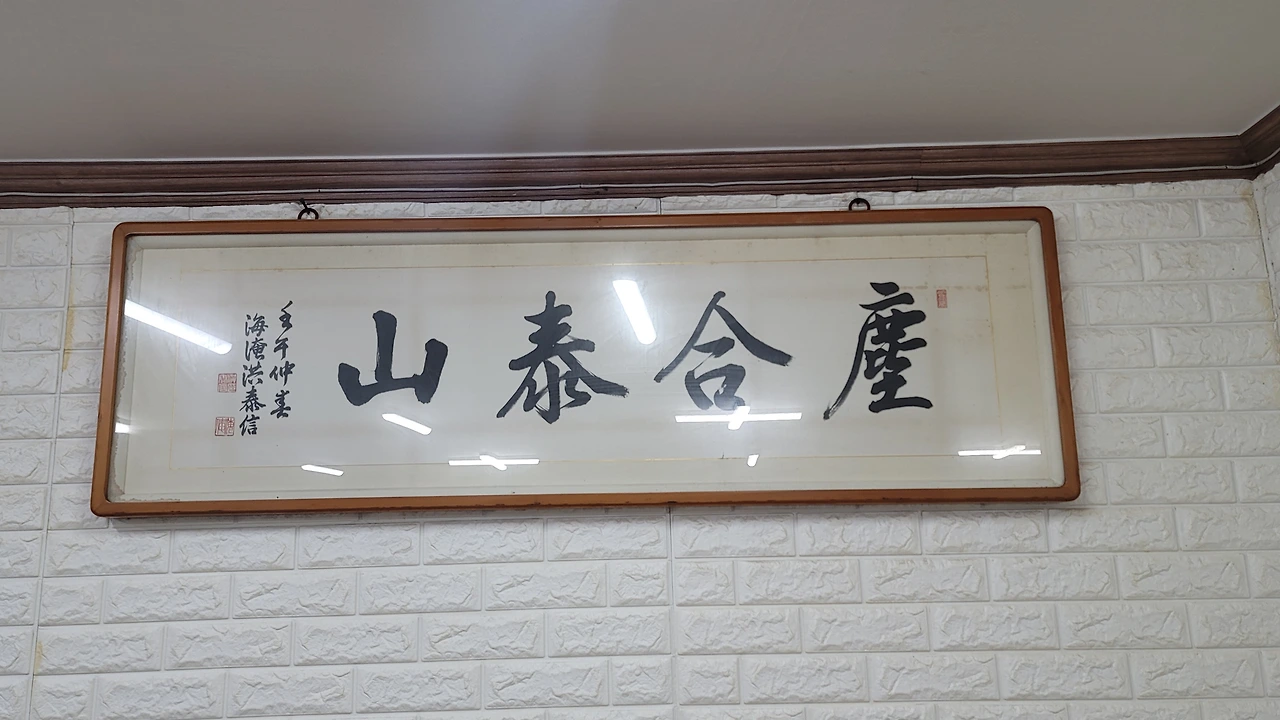 塵合泰山
壬午仲春
海庵洪泰信